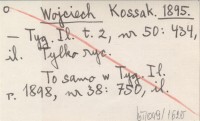 Wojciech Kossak. 1895.
— Tyg. Il. t. 2, nr 50: 434,
il. Tylko ryc.
To samo w Tyg. Il.
r. 1898, nr 38: 750, il.